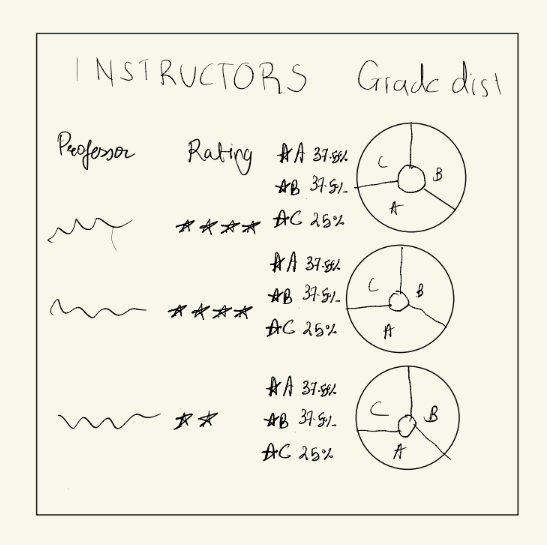 INSTRUCTORS Grade dist
Professor Rating A 37.5%
B 37.5%
C 25%
C B A
A 37.5%
B 37.5%
C 25%
C B A
A 37.5%
B 37.5%
C 25%
C B A